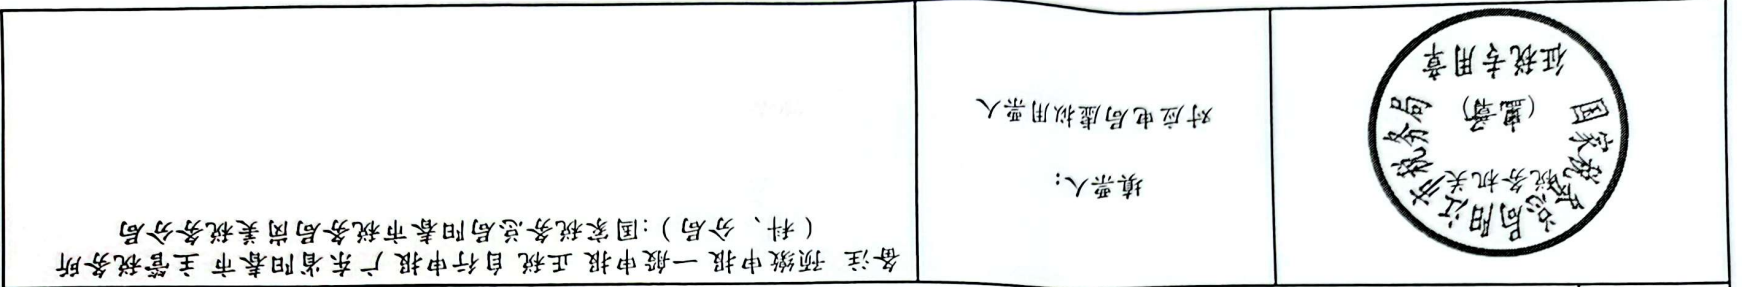 国家税务总局阳江市税务局
税务机关
（盖章）
征税专用章
填票人：
对应电局虚拟用票人
备注 预缴申报 一般申报 正税 自行申报 广东省阳春市 主管税务所
（科、分局）:国家税务总局阳春市税务局岗美税务分局